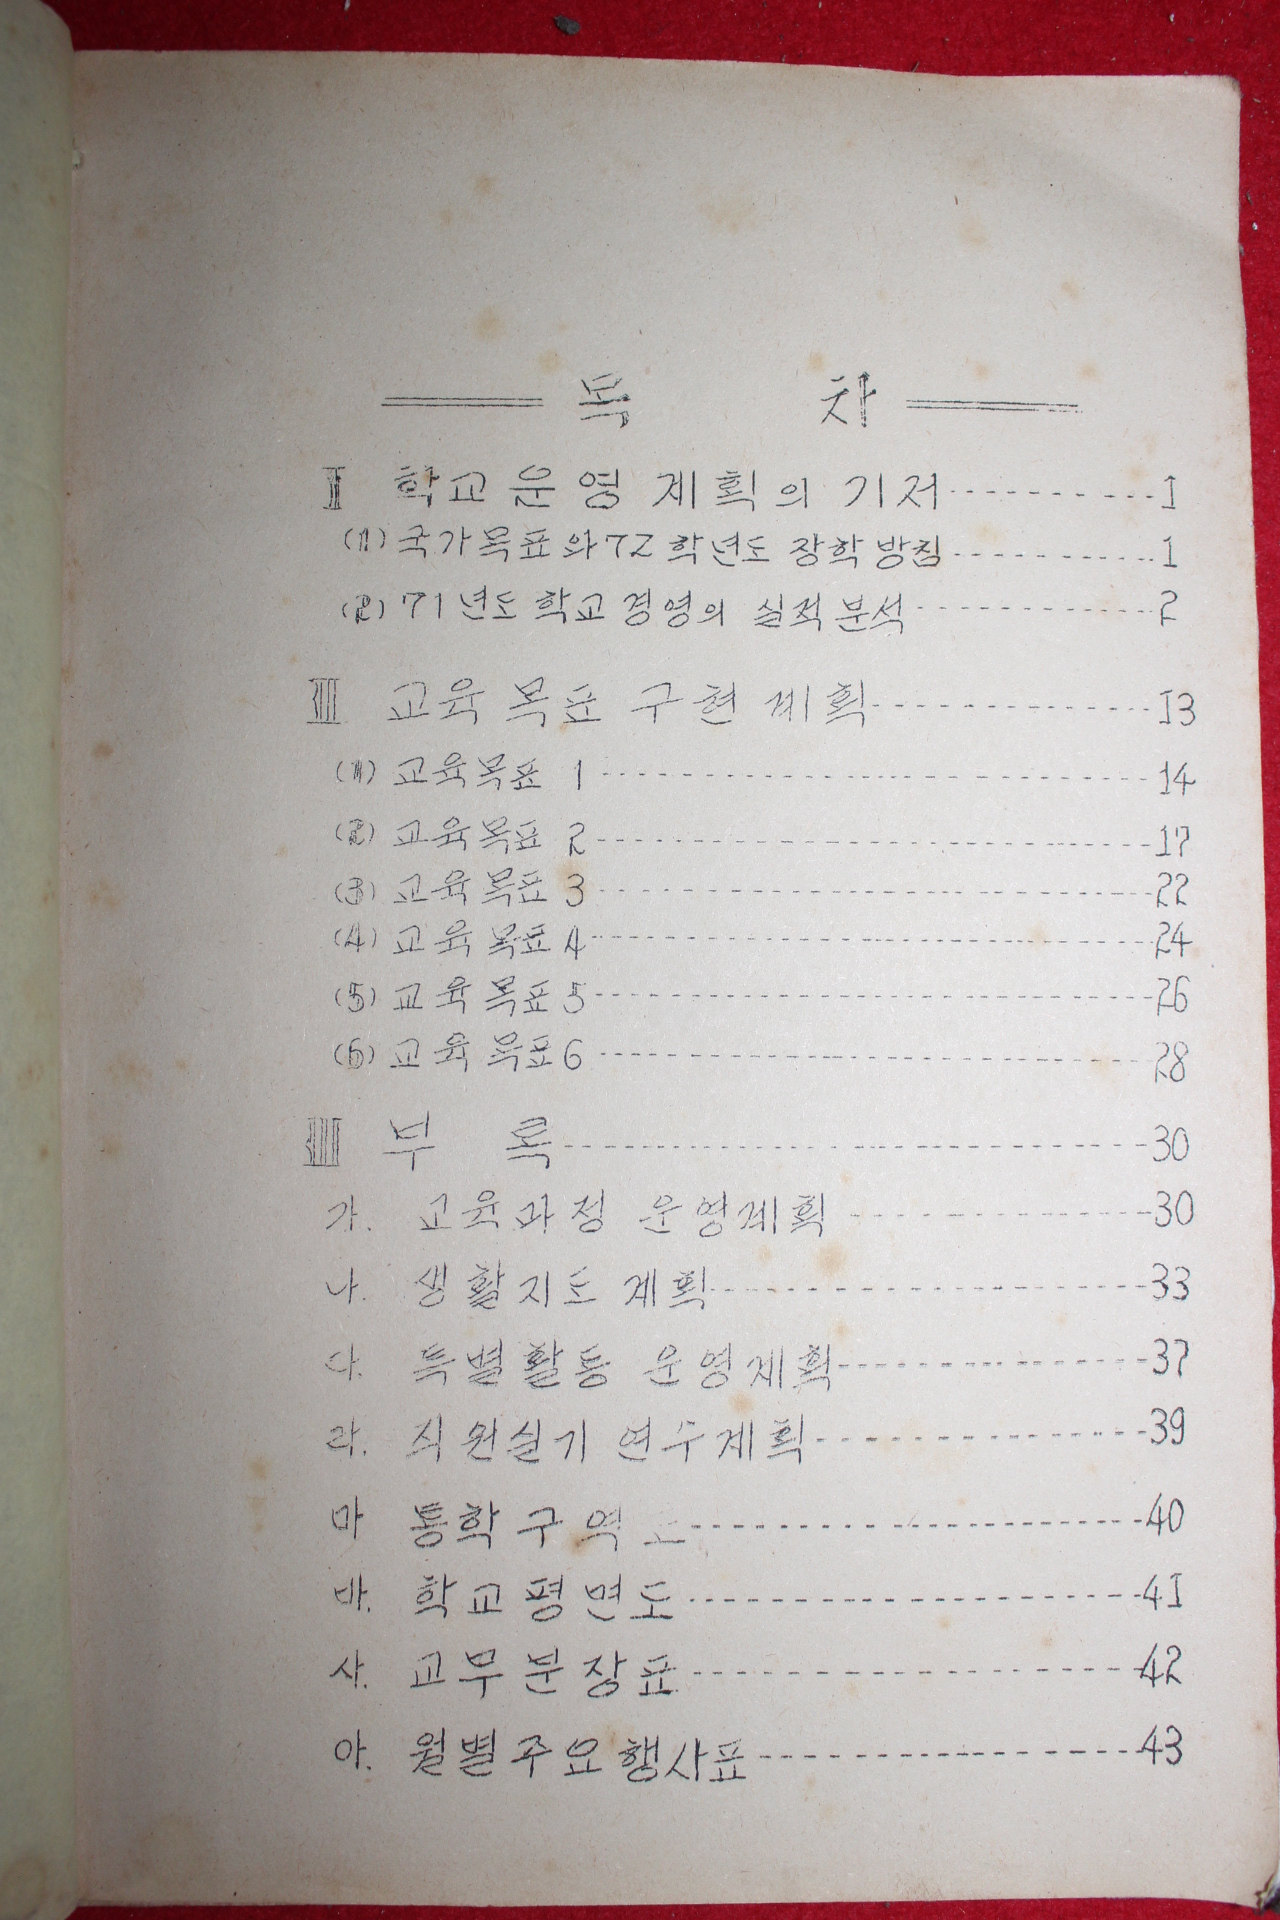 목 차
Ⅰ 학교운영 계획의 기저 1
(1) 국가목표와 72 학년도 장학방침 1
(2) 71년도 학교경영의 실적분석 2
Ⅱ 교육목표 구현 계획 13
(1) 교육목표 1 14
(2) 교육목표 2 17
(3) 교육목표 3 22
(4) 교육목표 4 24
(5) 교육목표 5 26
(6) 교육목표 6 28
Ⅲ 부 록 30
가. 교육과정 운영계획 30
나. 생활지도 계획 33
다. 특별활동 운영계획 37
라. 직원실기 연수계획 39
마 통학구역도 40
바. 학교평면도 41
사. 교무분장표 42
아. 월별주요행사표 43